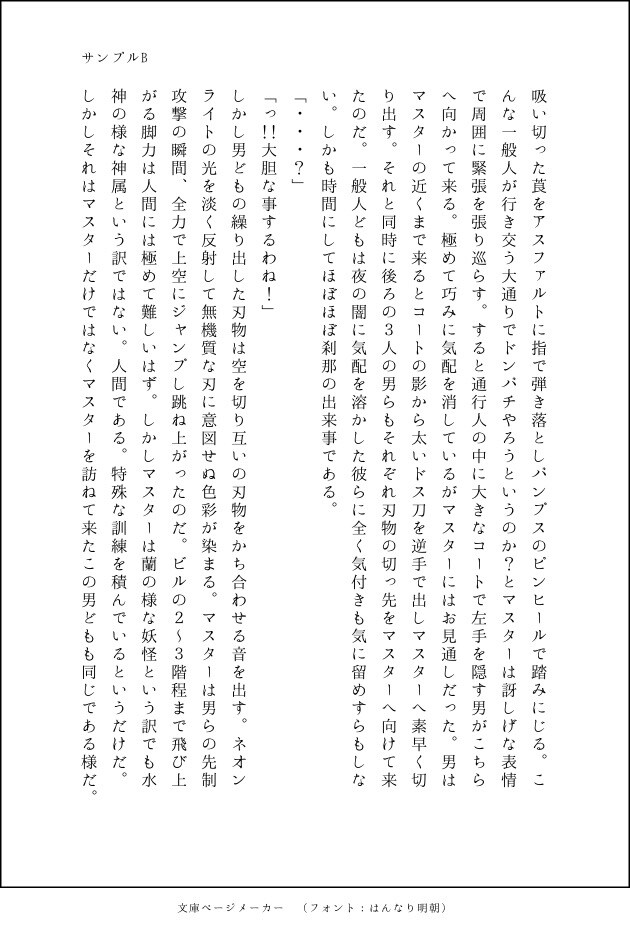 サンプルB
吸い切った莨をアスファルトに指で弾き落としパンプスのピンヒールで踏みにじる。こ
んな一般人が行き交う大通りでドンパチやろうというのか？とマスターは訝しげな表情
で周囲に緊張を張り巡らす。すると通行人の中に大きなコートで左手を隠す男がこちら
へ向かって来る。極めて巧みに気配を消しているがマスターにはお見通しだった。男は
マスターの近くまで来るとコートの影から太いドス刀を逆手で出しマスターへ素早く切
り出す。それと同時に後ろの３人の男らもそれぞれ刃物の切っ先をマスターへ向けて来
たのだ。一般人どもは夜の闇に気配を溶かした彼らに全く気付きも気に留めすらもしな
い。しかも時間にしてほぼほぼ刹那の出来事である。
「・・・？」
「っ!!大胆な事するわね！」
しかし男どもの繰り出した刃物は空を切り互いの刃物をかち合わせる音を出す。ネオン
ライトの光を淡く反射して無機質な刃に意図せぬ色彩が染まる。マスターは男らの先制
攻撃の瞬間、全力で上空にジャンプし跳ね上がったのだ。ビルの２～３階程まで飛び上
がる脚力は人間には極めて難しいはず。しかしマスターは蘭の様な妖怪という訳でも水
神の様な神属という訳ではない。人間である。特殊な訓練を積んでいるというだけだ。
しかしそれはマスターだけではなくマスターを訪ねて来たこの男どもも同じである様だ。
文庫ページメーカー　（フォント：はんなり明朝）